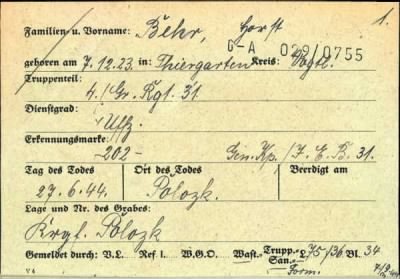 1.
Familien- u. Vorname: Behr, Horst
G-A 029/0755
geboren am 7.12.23. in: Thiergarten Kreis: Vogtl.
Truppenteil:
4./Gr. Rgt. 31.
Dienstgrad:
Uffz.
Erkennungsmarke:
-202- Gen. Kp./I.E.B. 31.
Tag des Todes Ort des Todes Beerdigt am
27.6.44. Polozk.
Lage und Nr. des Grabes:
Krgl. Polozk
Gemeldet durch: V.L. Ref I. W.G.O. Wast.- Trupp.- L 75/36 Bl. 34
San.-
Form.